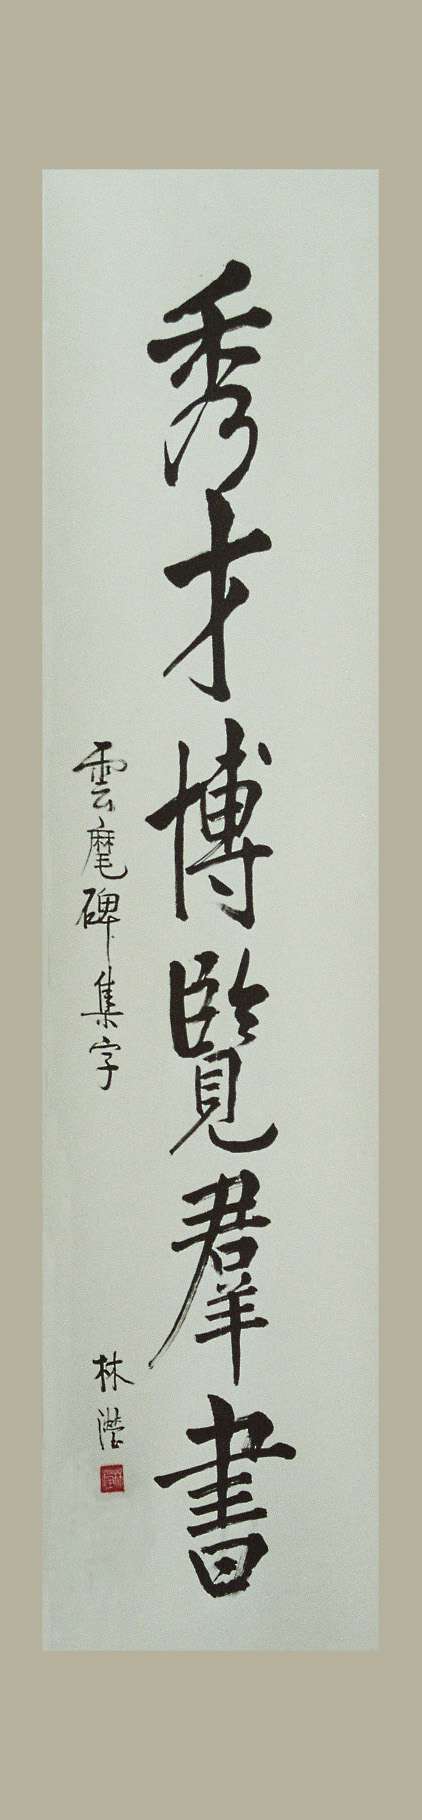 秀才博覽羣書
雲麾碑集字
林瀅